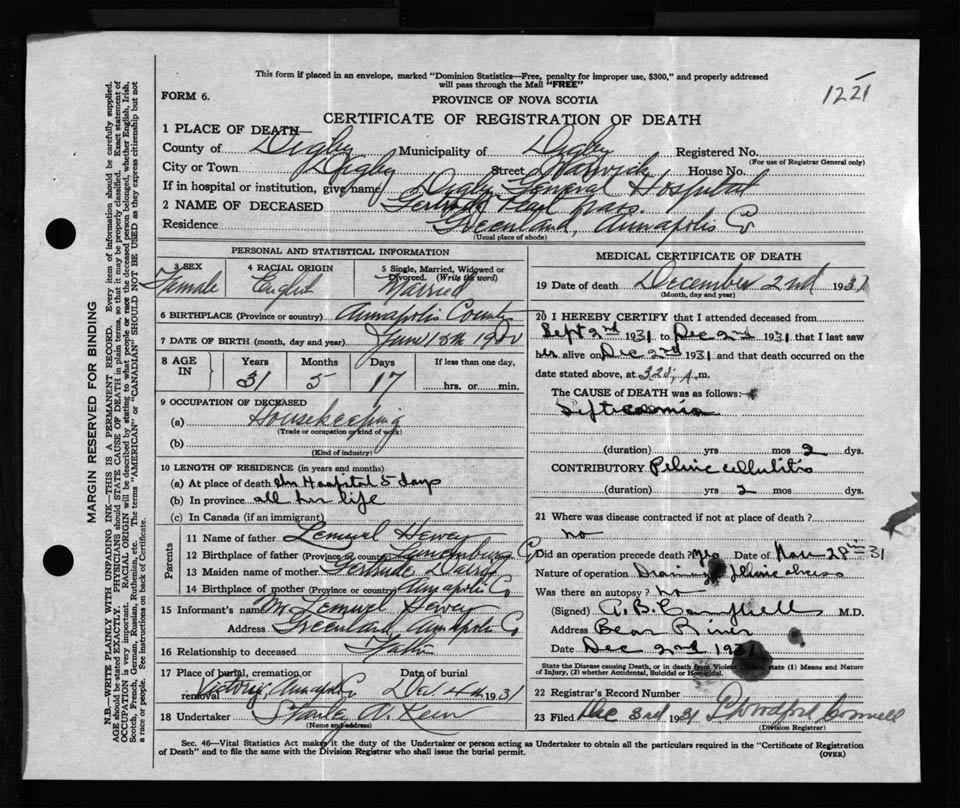 This form if placed in an envelope, marked "Dominion Statistics—Free, penalty for improper use, $300," and properly addressed
will pass through the Mail "FREE"
1221
FORM 6.
PROVINCE OF NOVA SCOTIA
CERTIFICATE OF REGISTRATION OF DEATH
1 PLACE OF DEATH—
County of Digby Municipality of Digby Registered No.
(For use of Registrar General only)
City or Town Digby Street Warwick House No.
If in hospital or institution, give name Digby General Hospital
2 NAME OF DECEASED Gertrude Pearl
Residence Greenland, Annapolis Co
(Usual place of abode)
PERSONAL AND STATISTICAL INFORMATION
3 SEX Female
4 RACIAL ORIGIN English
5 Single, Married, Widowed or Divorced. (Write the word) Married
6 BIRTHPLACE (Province or country) Annapolis County
7 DATE OF BIRTH (month, day and year) June 15th 1900
8 AGE IN
Years 31 Months 5 Days 17 If less than one day,
hrs. or min.
9 OCCUPATION OF DECEASED
(a) Housekeeping
(Trade or occupation or kind of work)
(b)
(Kind of industry)
10 LENGTH OF RESIDENCE (in years and months)
(a) At place of death In Hospital 5 days
(b) In province all her life
(c) In Canada (if an immigrant)
Parents
11 Name of father Lemuel Hewey
12 Birthplace of father (Province or country) Lunenburg Co
13 Maiden name of mother Gertrude
14 Birthplace of mother (Province or country) Annapolis Co
15 Informant's name Mr. Lemuel Hewey
Address Greenland, Annapolis Co
16 Relationship to deceased Father
17 Place of burial, cremation or removal Victory, Annap. Co Date of burial Dec 4th 1931
18 Undertaker Stanley
(Name and address)
MEDICAL CERTIFICATE OF DEATH
19 Date of death December 2nd 1931
(Month, day and year)
20 I HEREBY CERTIFY that I attended deceased from
Sept 2nd 1931 to Dec 2nd 1931 that I last saw
her alive on Dec 2nd 1931 and that death occurred on
date stated above, at m.
The CAUSE OF DEATH was as follows:
Septicaemia
(duration) yrs mos 2 dys.
CONTRIBUTORY Pelvic cellulitis
(duration) yrs 2 mos dys.
21 Where was disease contracted if not at place of death?
no
Did an operation precede death? Yes Date of Nov 28th 31
Nature of operation Draining pelvic abcess
Was there an autopsy? no
(Signed) A. B. Campbell M.D.
Address Bear River
Date Dec 2nd 1931
State the Disease causing Death, or in death from Violent Causes, state (1) Means and Nature
of Injury, (2) whether Accidental, Suicidal or Homicidal.
22 Registrar's Record Number
23 Filed Dec 3rd 1931
(Division Registrar)
Sec. 46—Vital Statistics Act makes it the duty of the Undertaker or person acting as Undertaker to obtain all the particulars required in the "Certificate of Registration
of Death" and to file the same with the Division Registrar who shall issue the burial permit.
(OVER)
MARGIN RESERVED FOR BINDING
N.B.—WRITE PLAINLY WITH UNFADING INK—THIS IS A PERMANENT RECORD. Every item of information should be carefully supplied.
AGE should be stated EXACTLY. PHYSICIANS should STATE CAUSE OF DEATH in plain terms, so that it may be properly classified. Exact statement of
OCCUPATION is very important. RACIAL ORIGIN will be described by stating to what people or race the deceased person belonged, whether English, Irish,
Scotch, French, German, Russian, Ruthenian, etc. The terms "AMERICAN" or "CANADIAN" SHOULD NOT BE USED as they express citizenship but not
a race or people. See instructions on back of Certificate.